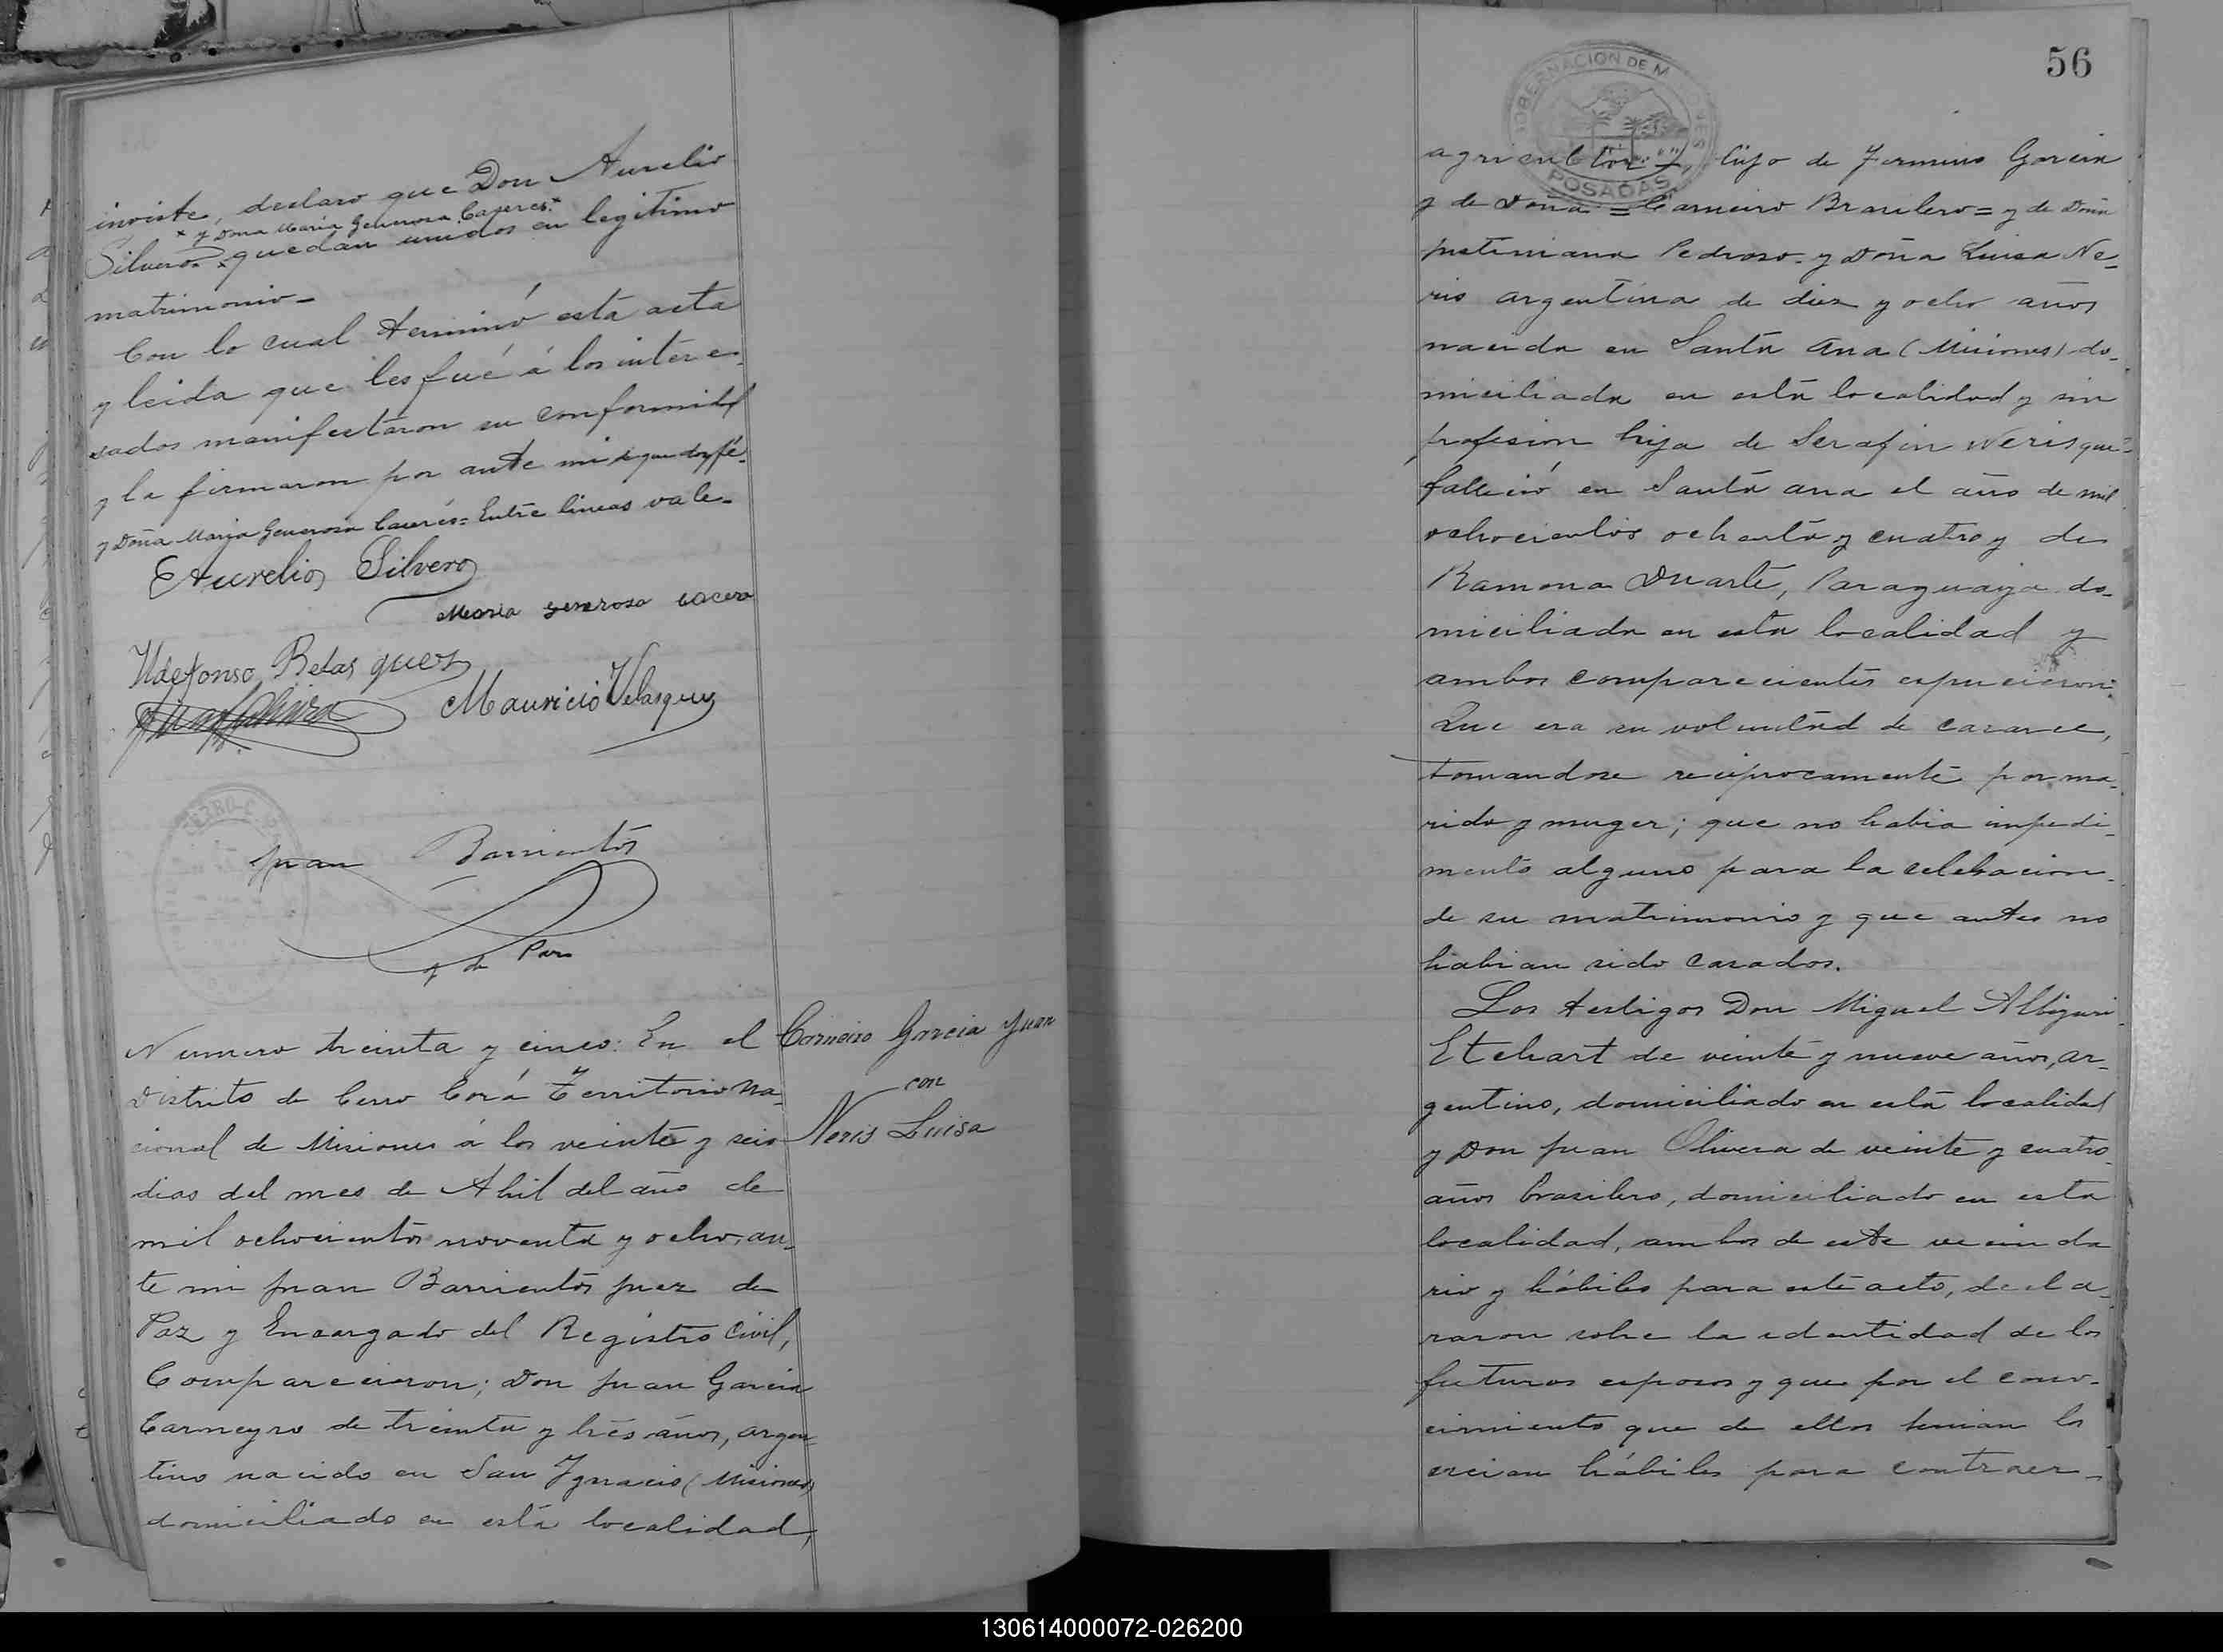 inviste, declaro que Don Aurelio
× y Doña Maria Generosa Caseres ×
Silvero × quedan unidos en legitimo
matrimonio –
Con lo cual terminó esta acta
y leida que les fué á los intere-
sados manifestaron su conformidad
y la firmaron por ante mi de que doy fé.
y Doña Maria Generosa Caserés = Entre lineas vale –
Aurelio Silvero
Maria generosa cacere
Ildefonso Belasques
Mauricio Velasquez
Juan Barrientos
J de Paz
Numero treinta y cinco: En el
Distrito de Cerro Corá Territorio Na-
cional de Misiones á los veinte y seis
dias del mes de Abril del año de
mil ochocientos noventa y ocho, an-
te mi Juan Barrientos Juez de
Paz y Encargado del Registro Civil,
Comparecieron; Don Juan Garcia
Carneyro de treinta y trés años, argen-
tino nacido en San Ignacio (Misiones)
domiciliado en esta localidad,
Carneiro Garcia Juan
con
Neris Luisa
56
GOBERNACION DE MISIONES
POSADAS
agricultor, hijo de Fermino Garcia
y de Doña = Carneiro Brasilero = y de Doña
Justiniana Pedroso. y Doña Luisa Ne-
ris argentina de diez y ocho años
nacida en Santa Ana (Misiones) do-
miciliada en esta localidad y sin
profesion hija de Serafin Neris que
falleció en Santa Ana el año de mil
ochocientos ochenta y cuatro y de
Ramona Duarte, Paraguaya do-
miciliada en esta localidad y
ambos comparecientes espucieron:
Que era su voluntad de casarce,
tomandose reciprocamente por ma-
rido y muger; que no habia impedi-
mento alguno para la celebracion
de su matrimonio y que antes no
habian sido casados.
Los testigos Don Miguel
Etchart de veinte y nueve años, ar-
gentino, domiciliado en esta localidad
y Don Juan Olivera de veinte y cuatro
años brasilero, domiciliado en esta
localidad, ambos de este vecinda
rio y hábiles para este acto, decla-
raron sobre la identidad de los
futuros esposos y que por el cono-
cimiento que de ellos tenian los
creian hábiles para contraer –
130614000072-026200